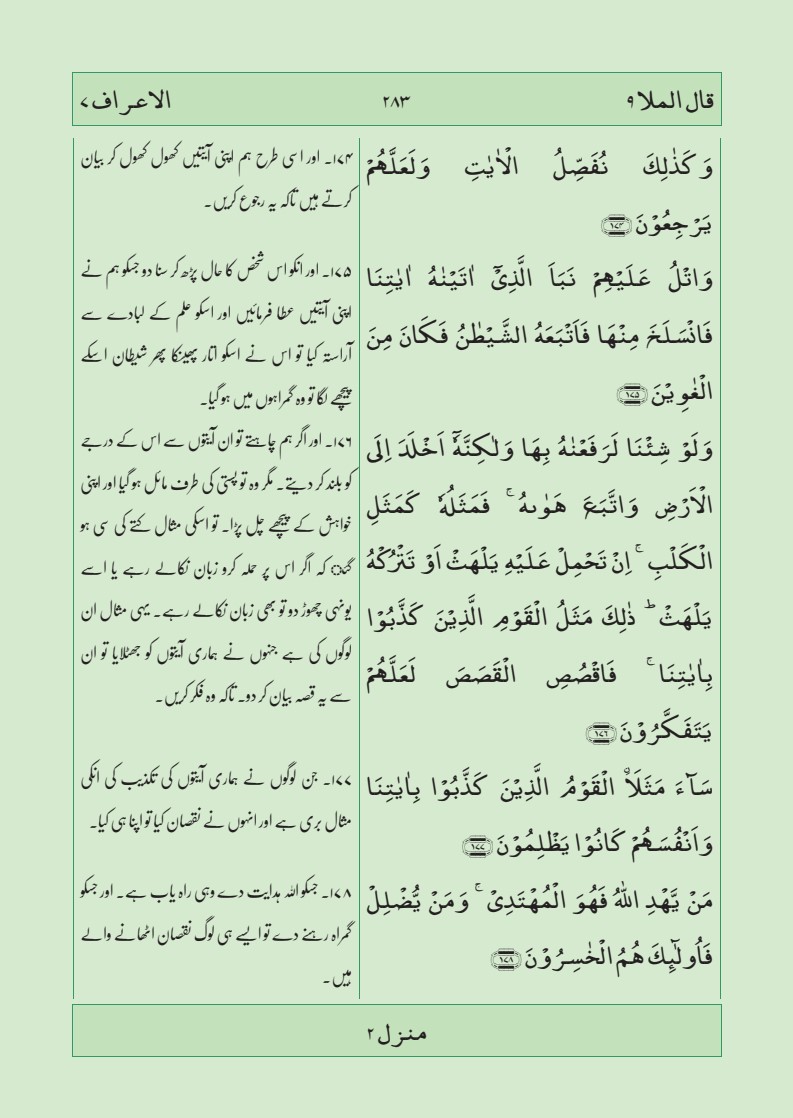 قال الملا ۹
۲۸۳
الاعراف ۷
وَ کَذٰلِکَ نُفَصِّلُ الْاٰیٰتِ وَ لَعَلَّهُمْ
یَرْجِعُوْنَ ﴿۱۷۴﴾
وَ اتْلُ عَلَیْهِمْ نَبَاَ الَّذِیْۤ اٰتَیْنٰهُ اٰیٰتِنَا
فَانْسَلَخَ مِنْهَا فَاَتْبَعَهُ الشَّیْطٰنُ فَکَانَ مِنَ
الْغٰوِیْنَ ﴿۱۷۵﴾
وَ لَوْ شِئْنَا لَرَفَعْنٰهُ بِهَا وَ لٰکِنَّهٗۤ اَخْلَدَ اِلَی
الْاَرْضِ وَ اتَّبَعَ هَوٰىهُ ۚ فَمَثَلُهٗ کَمَثَلِ
الْکَلْبِ ۚ اِنْ تَحْمِلْ عَلَیْهِ یَلْهَثْ اَوْ تَتْرُکْهُ
یَلْهَثْ ؕ ذٰلِکَ مَثَلُ الْقَوْمِ الَّذِیْنَ کَذَّبُوْا
بِاٰیٰتِنَا ۚ فَاقْصُصِ الْقَصَصَ لَعَلَّهُمْ
یَتَفَکَّرُوْنَ ﴿۱۷۶﴾
سَآءَ مَثَلَاۨ الْقَوْمُ الَّذِیْنَ کَذَّبُوْا بِاٰیٰتِنَا
وَ اَنْفُسَهُمْ کَانُوْا یَظْلِمُوْنَ ﴿۱۷۷﴾
مَنْ یَّهْدِ اللّٰهُ فَهُوَ الْمُهْتَدِیْ ۚ وَ مَنْ یُّضْلِلْ
فَاُولٰٓئِکَ هُمُ الْخٰسِرُوْنَ ﴿۱۷۸﴾
۱۷۴۔ اور اسی طرح ہم اپنی آیتیں کھول کھول کر بیان
کرتے ہیں تاکہ یہ رجوع کریں۔
۱۷۵۔ اور انکو اس شخص کا حال پڑھ کر سنا دو جسکو ہم نے
اپنی آیتیں عطا فرمائیں اور اسکو علم کے لبادے سے
آراستہ کیا تو اس نے اسکو اتار پھینکا پھر شیطان اسکے
پیچھے لگا تو وہ گمراہوں میں ہو گیا۔
۱۷۶۔ اور اگر ہم چاہتے تو ان آیتوں سے اس کے درجے
کو بلند کر دیتے۔ مگر وہ تو پستی کی طرف مائل ہو گیا اور اپنی
خواہش کے پیچھے چل پڑا۔ تو اسکی مثال کتے کی سی ہو
کہ اگر اس پر حملہ کرو زبان نکالے رہے یا اسے
یونہی چھوڑ دو تو بھی زبان نکالے رہے۔ یہی مثال ان
لوگوں کی ہے جنہوں نے ہماری آیتوں کو جھٹلایا تو ان
سے یہ قصہ بیان کر دو۔ تاکہ وہ فکر کریں۔
۱۷۷۔ جن لوگوں نے ہماری آیتوں کی تکذیب کی انکی
مثال بری ہے اور انہوں نے نقصان کیا تو اپنا ہی کیا۔
۱۷۸۔ جسکو اللہ ہدایت دے وہی راہ یاب ہے۔ اور جسکو
گمراہ رہنے دے تو ایسے ہی لوگ نقصان اٹھانے والے
ہیں۔
منزل ۲